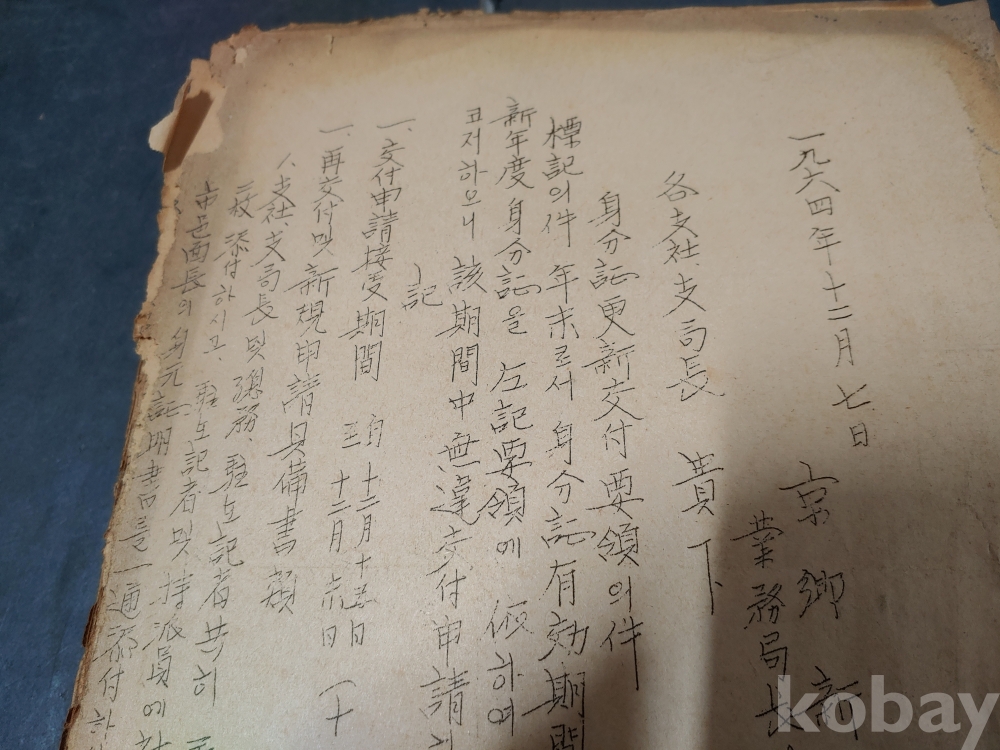 一九六四年十二月七日
京鄕新
業務局長
各支社, 支局長 貴下
身分証更新交付要領의件
標記의件 年末로서 身分証有効期間
新年度身分証을 左記要領에 依하여
코저하오니 該期間中無違交付申請
記
一. 交付申請接受期間 自 十二月十五日
至 十二月 日
一. 再交付및 新規申請具備書類
支社, 支局長및 總務, 駐在記者共히
添付하시고, 駐在記者및 特派員에
長의 身元証明書를 一通添付하
kobay